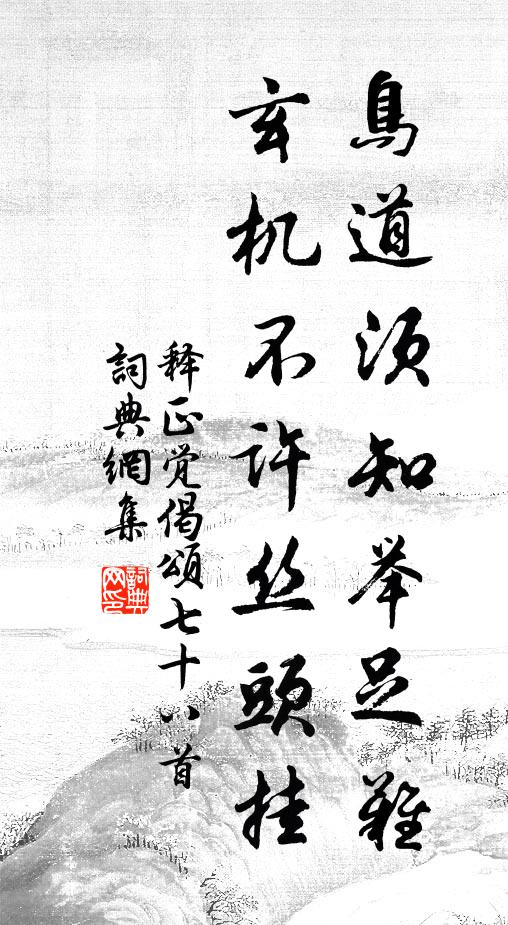 鳥道须知举足難
玄机不许丝頭挂
释正觉偈頌七十八首
詞典網集
詞典网印